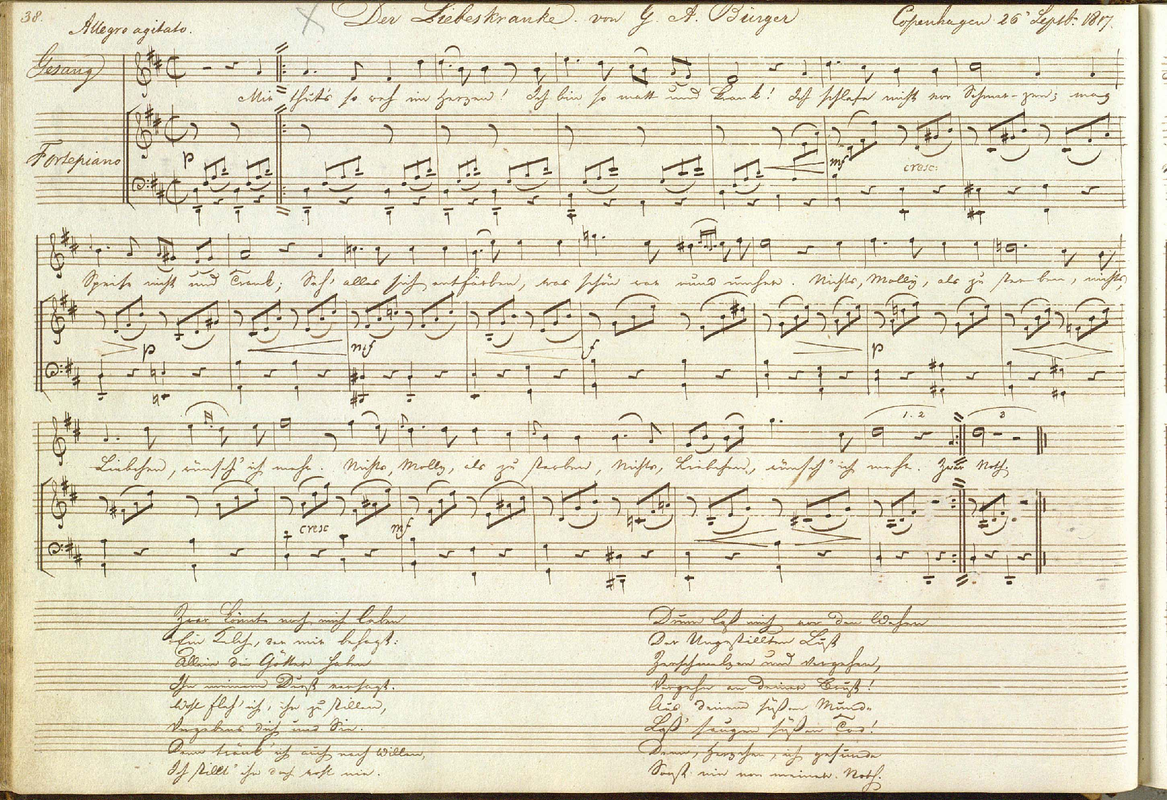 38.
Der Liebeskranke. von G. A. Bürger
Copenhagen 26 Septb. 1817.
Allegro agitato.
Gesang
Mir thut's so weh im Herzen! Ich bin so matt und krank! Ich schlafe nicht vor Schmerzen; mag
Fortepiano
p mf cresc:
Speise nicht und Trank; Seh' alles sich entfärben, was schön war rund umher. Nichts, Molly, als zu sterben, nichts
p mf f p
1. 2 3
Liebchen, wünsch' ich mehr. Nichts, Molly, als zu sterben, Nichts, Liebchen, wünsch' ich mehr. Zwar Noth.
cresc mf
Zwar könnte noch mich laben
Ein Kelch, der mir behagt:
Allein die Götter haben
Ihn meinem Durst versagt.
Wohl fleh' ich, ihn zu stillen,
Vergebens dich und Sie.
Denn tränk' ich auch nach Willen,
Ich stillt' ihn doch wohl nie.
Drum laß mich vor den Wehen
Der Ungestillten Lust
Zerschmelzen und vergehen,
Vergehn an deiner Brust!
Aus deinem süßen Munde
Laß saugen süßen Tod!
Denn, Herzchen, ich gesunde
Sonst nie von meiner Noth.